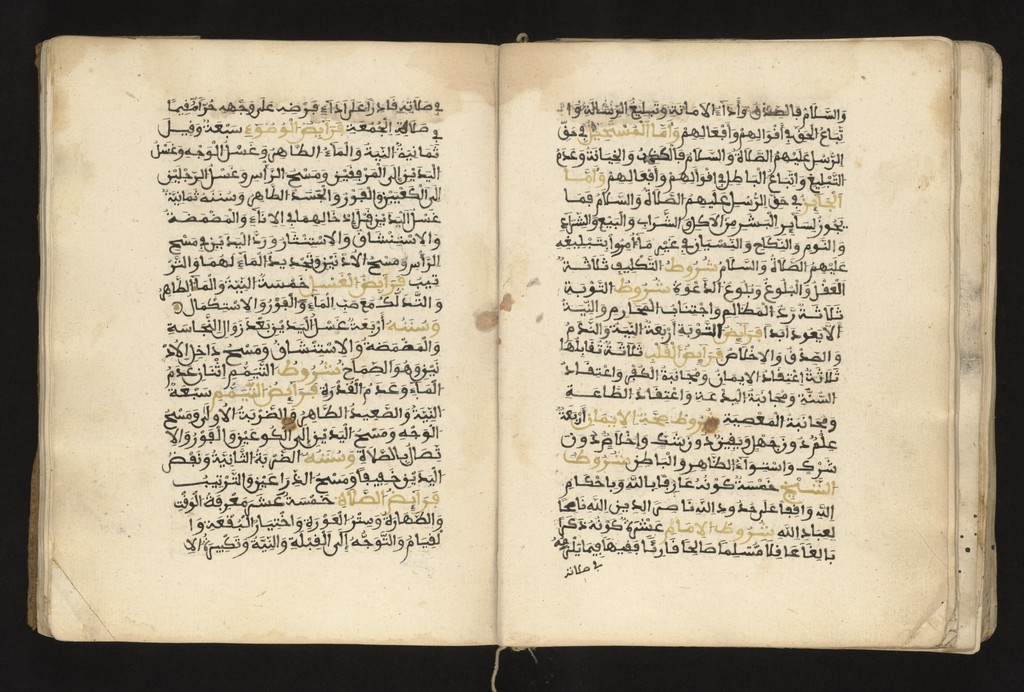 والسلام فالصدق وأداء الامانة وتبليغ الرسالة وا
تباع الحق في أقوالهم وأفعالهم وأما المستحيل في حق
الرسل عليهم الصلاة والسلام فالكذب والخيانة وعدم
التبليغ واتباع الباطل في أقوالهم وأفعالهم وأما
الجايز في حق الرسل عليهم الصلاة والسلام فما
يجوز لساير البشر من الاكل والشراب والبيع والشراء
والنوم والنكاح والنسيان في غير ما أمروا بتبليغه
عليهم الصلاة والسلام شروط التكليف ثلاثة
العقل والبلوغ وبلوغ الدعوة شروط التوبة
ثلاثة رد المظالم واجتناب المحارم والنية
ألا يعود أبدا فرايض التوبة أربعة النية والندم
والصدق والاخلاص فرايض القلب ثلاثة تقابلها
ثلاثة اعتقاد الايمان ومجانبة الكفر واعتقاد
السنة ومجانبة البدعة واعتقاد الطاعة
ومجانبة المعصية شروط صحة الايمان أربعة
علم دون جهل ويقين دون شك وإخلاص دون
شرك واستواء الظاهر والباطن شروط
الشيخ خمسة كونه عارفا بالله وبأحكام
الله واقفا على حدود الله ناصر الدين الله ناصحا
لعباد الله شروط الامام عشرة كونه ذكرا
بالغا عاقلا مسلما صالحا قارئا فقيها بما يلزمه
في صلاته
في صلاته قادرا على أداء فرضه على وجهه حرا مقيما
في صلاة الجمعة فرايض الوضوء سبعة وقيل
ثمانية النية والماء الطاهر وغسل الوجه وغسل
اليدين إلى المرفقين ومسح الرأس وغسل الرجلين
إلى الكعبين والفور والجسد الطاهر وسننه ثمانية
غسل اليدين قبل إدخالهما في الاناء والمضمضة
والاستنشاق والاستنثار ورد اليدين في مسح
الرأس ومسح الاذنين وتجديد الماء لهما والتر
تيب فرايض الغسل خمسة النية والماء الطاهر
والتدلك مع صب الماء والفور والاستكمال
وسننه أربعة غسل اليدين بعد زوال النجاسة
والمضمضة والاستنشاق ومسح داخل الاذ
نين وهو الصماخ شروط التيمم اثنان عدم
الماء وعدم القدرة فرايض التيمم سبعة
النية والصعيد الطاهر والضربة الاولى ومسح
الوجه ومسح اليدين إلى الكوعين والفور والا
تصال بالصلاة وسننه الضربة الثانية ونفض
اليدين خفيفا ومسح الذراعين والترتيب
فرايض الصلاة خمسة عشر معرفة الوقت
والطهارة وستر العورة واختيار البقعة وا
لقيام والتوجه إلى القبلة والنية وتكبيرة الا